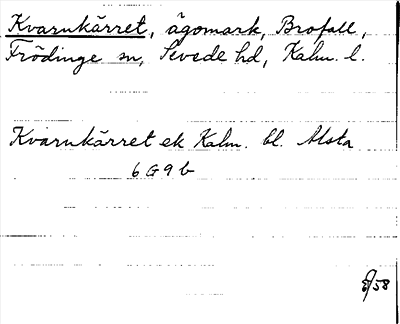 Kvarnkärret, ägomark, Brofall,
Frödinge sn, Sevede hd, Kalm. l.
Kvarnkärret ek Kalm. bl. Alsta
6 G 9 b
/58